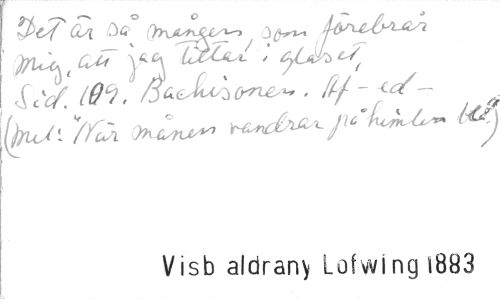 Det är så mången, som förebrår
mig, att jag tittar i glaset,
Sid. 109. Backisonen. Af -ed-
(mel: "När månen vandrar på himlen blå")
Visb aldrany Lofwing 1883